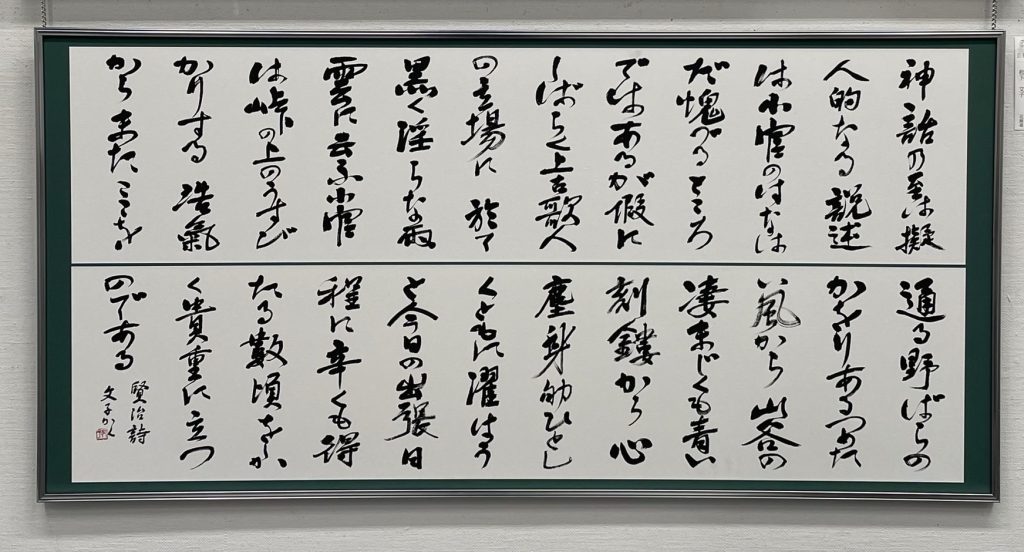 神話乃至は擬
人的なる説述
は小官のはなは
だ愧づるところ
ではあるが假に
しばらく上古歌人
の立場に於て
黒く淫らな雨
雲に云ふ小官
は峠の上のうすび
かりする浩氣
からまたここを
通る野ばらの
かをりあるつめた
い風から山谷の
凄まじくも青い
刻鏤から心
塵身劬ひとし
くともに濯はう
と今日の出張日
程に辛くも得
たる數頃をしか
く貴重に立つ
のである
賢治詩
文子かく